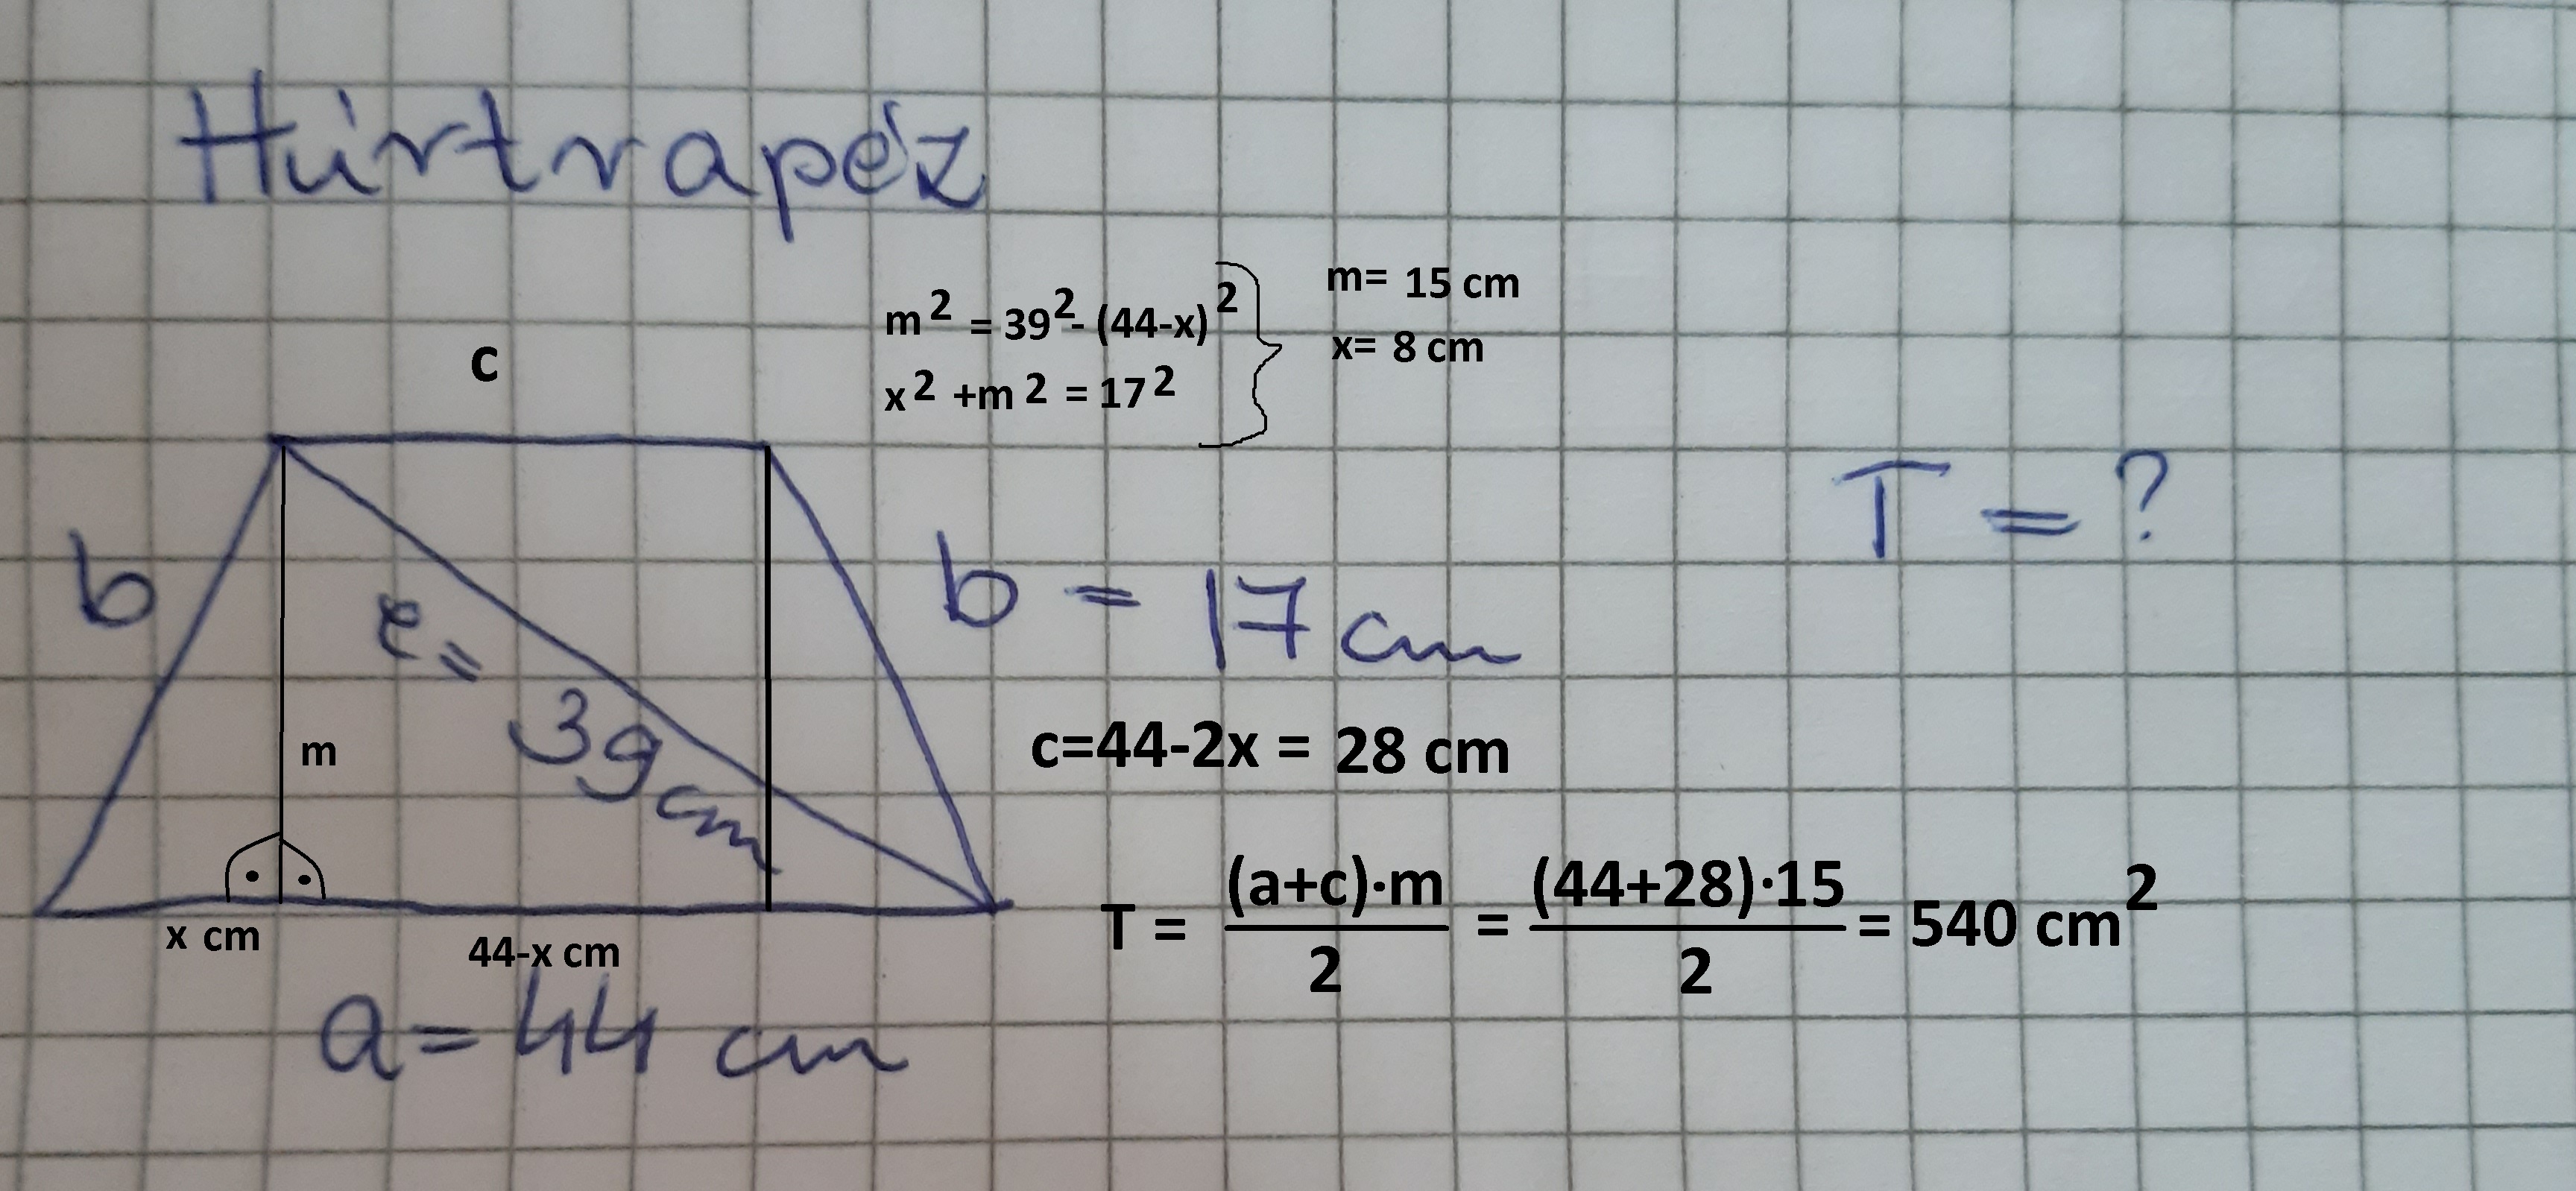 Húrtrapéz
m² = 39² - (44-x)²
x² +m² = 17²
m= 15 cm
x= 8 cm
c
T = ?
b
e = 39 cm
b = 17 cm
m
c=44-2x = 28 cm
T = (a+c)·m/2 = (44+28)·15/2 = 540 cm²
x cm
44-x cm
a = 44 cm